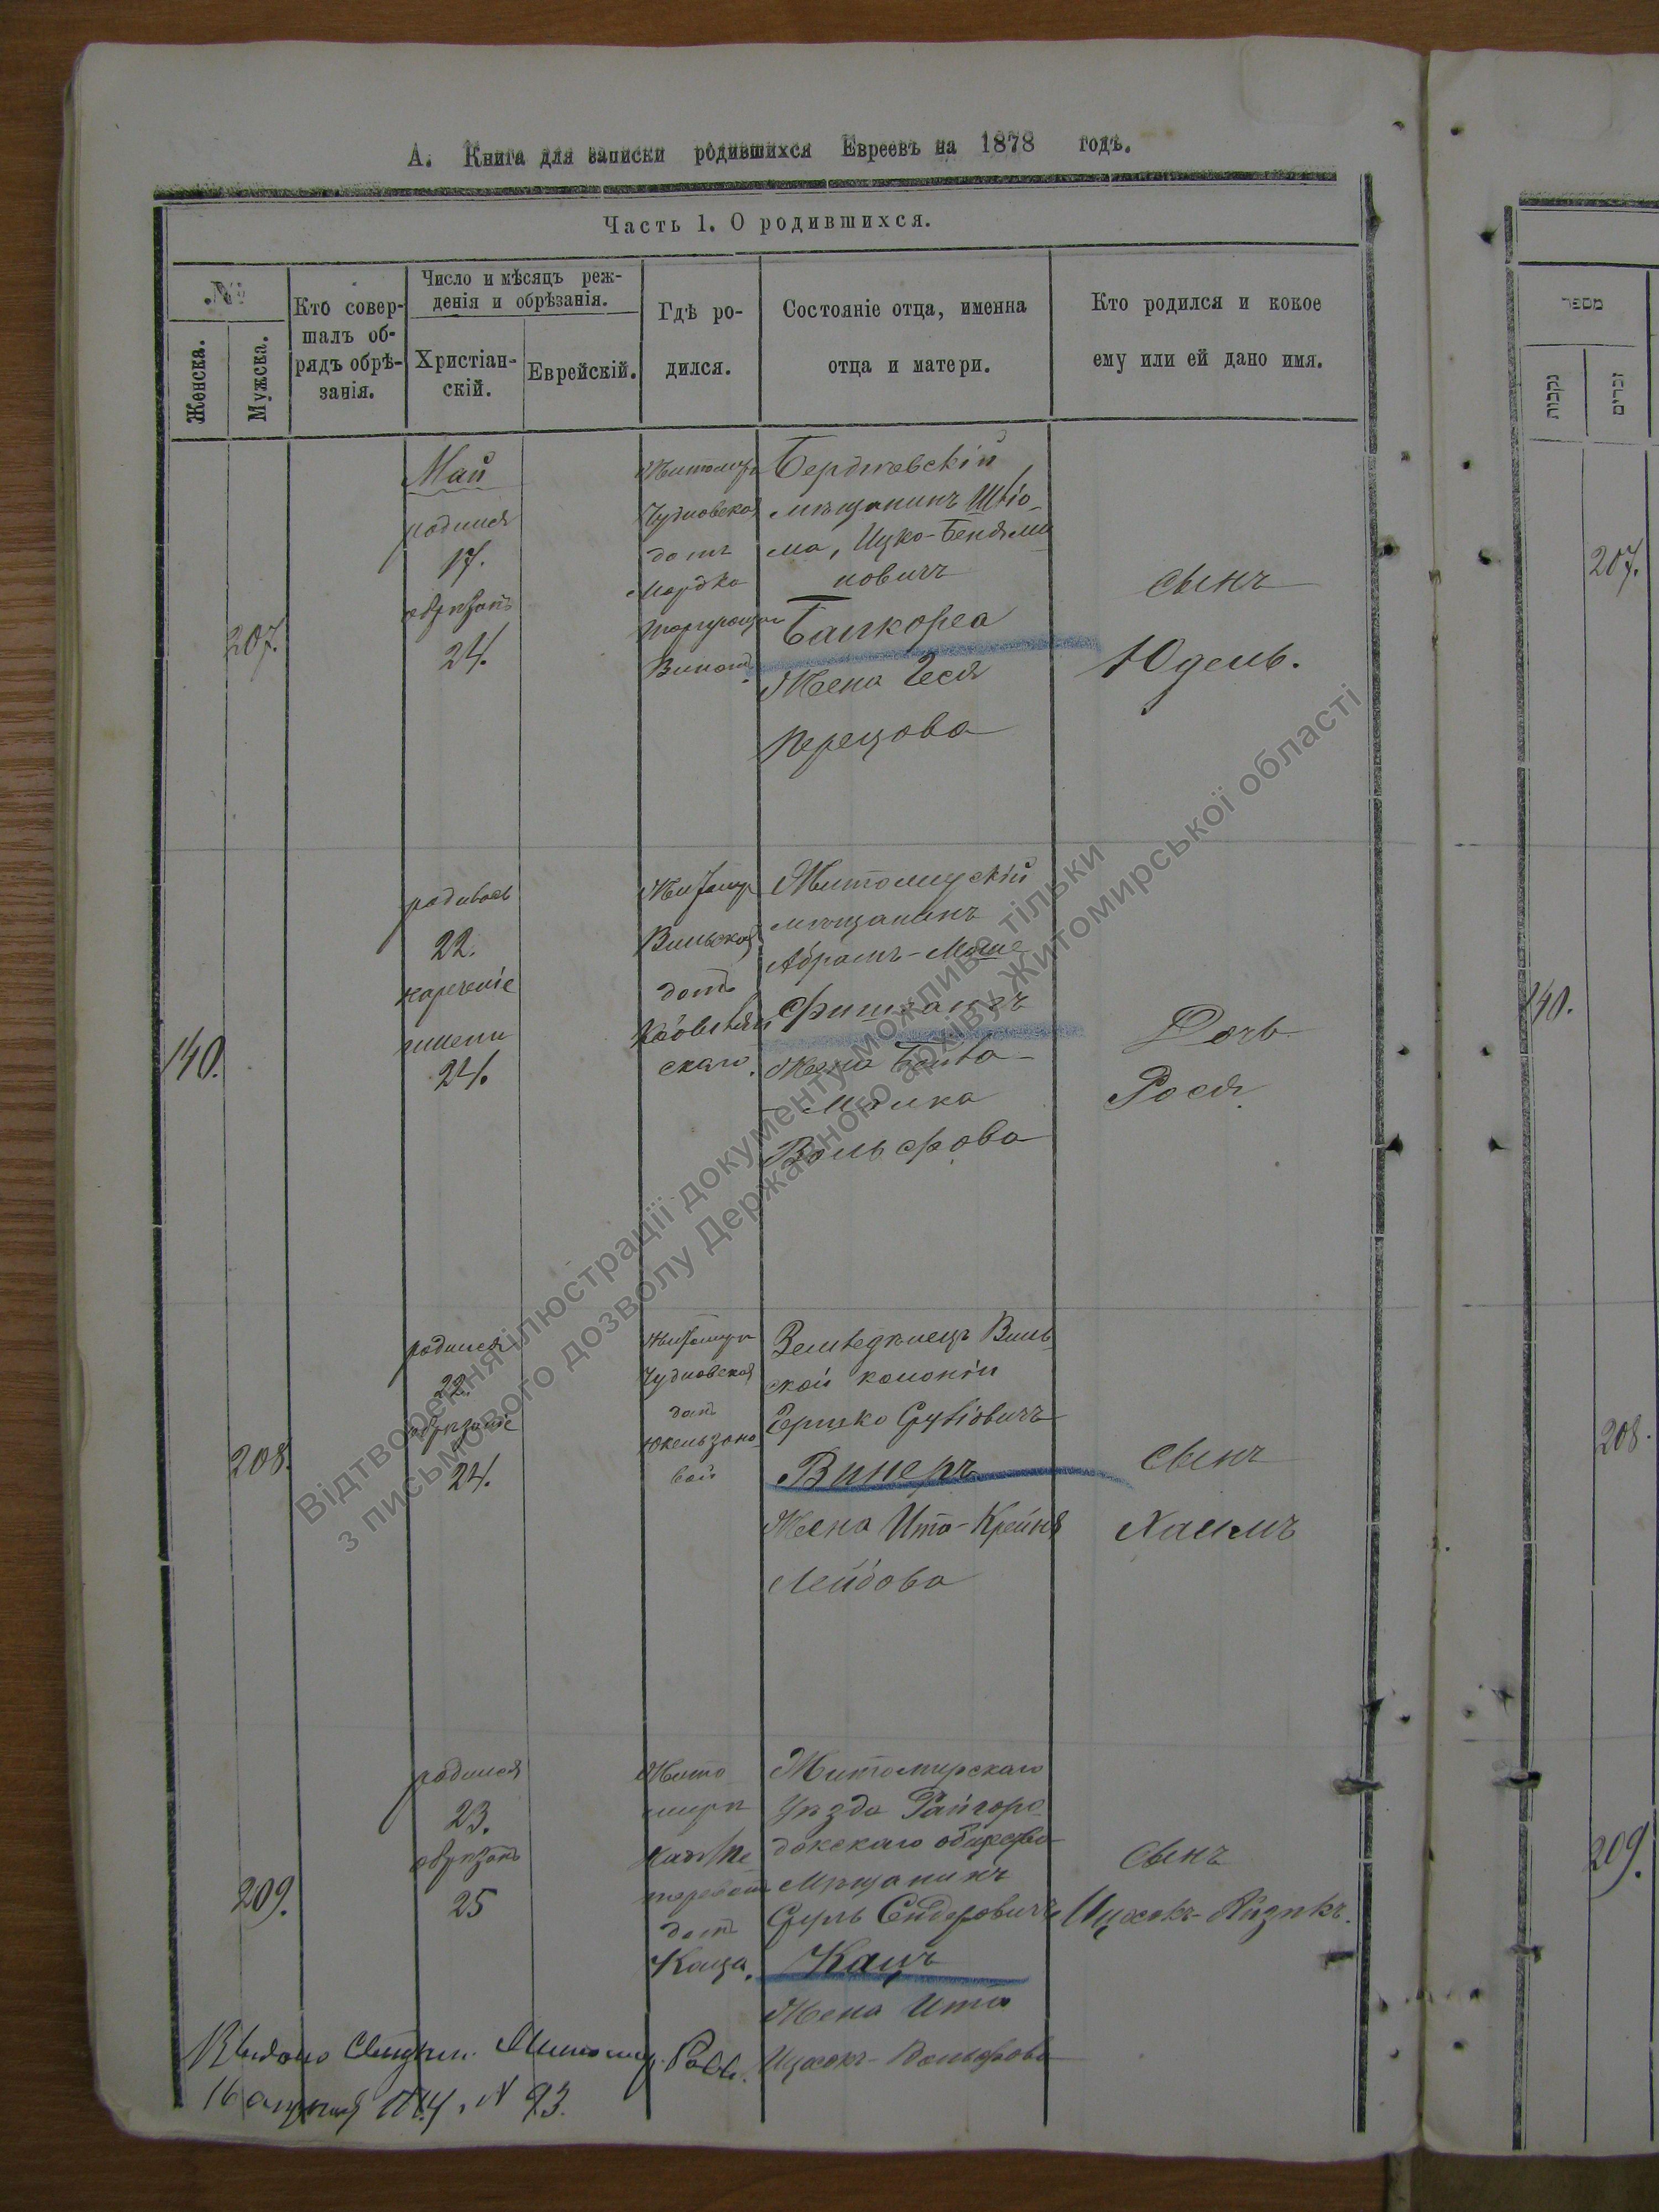 А. Книга для записки родившихся Евреевъ на 1878 годъ.
Часть 1. О родившихся.
№
Женска.
Мужска.
Кто совер-
шалъ об-
рядъ обрѣ-
занія.
Число и мѣсяцъ реж-
денія и обрѣзанія.
Христіан-
скій.
Еврейскій.
Гдѣ ро-
дился.
Состояніе отца, именна
отца и матери.
Кто родился и кокое
ему или ей дано имя.
207.
Май
родился
17.
обрѣзанъ
24.
Чудновская
домъ
Мордка
Бердичевскій
мѣщанинъ
ма, Ицко-Бенями
новичъ
Жена Геся
Перецова
сынъ
Юдель.
140.
родилась
22.
нареченіе
имени
24.
Житомир
Вильская
домъ
скаго.
Житомирскій
мѣщанинъ
Абрамъ-Моше
Фишманъ
Жена
Малка
Вольфова
Дочь
Рося
208.
родился
22.
обрѣзаніе
24.
Житомиръ
Чудновская
домъ
вой
Земледѣлецъ Виль
ской колоніи
Гершко Срулiовичъ
Винеръ
Жена Ита-Крейня
Лейбова
сынъ
Хаимъ
209.
родился
23.
обрѣзанъ
25
Жито
миръ
домъ
Каца.
Житомирскаго
уѣзда Райгоро
докскаго общества
мѣщанинъ
Сруль Сендеровичъ
Кацъ
Жена Ита
Ицхокъ-Вольфова
сынъ
Ицхокъ-Айзикъ.
16 апрѣля N 93.
מספר
נקבות
זכרים
207.
140.
208.
209.
Відтворення ілюстрації документу можливе тільки
з письмового дозволу Державного архіву Житомирської області